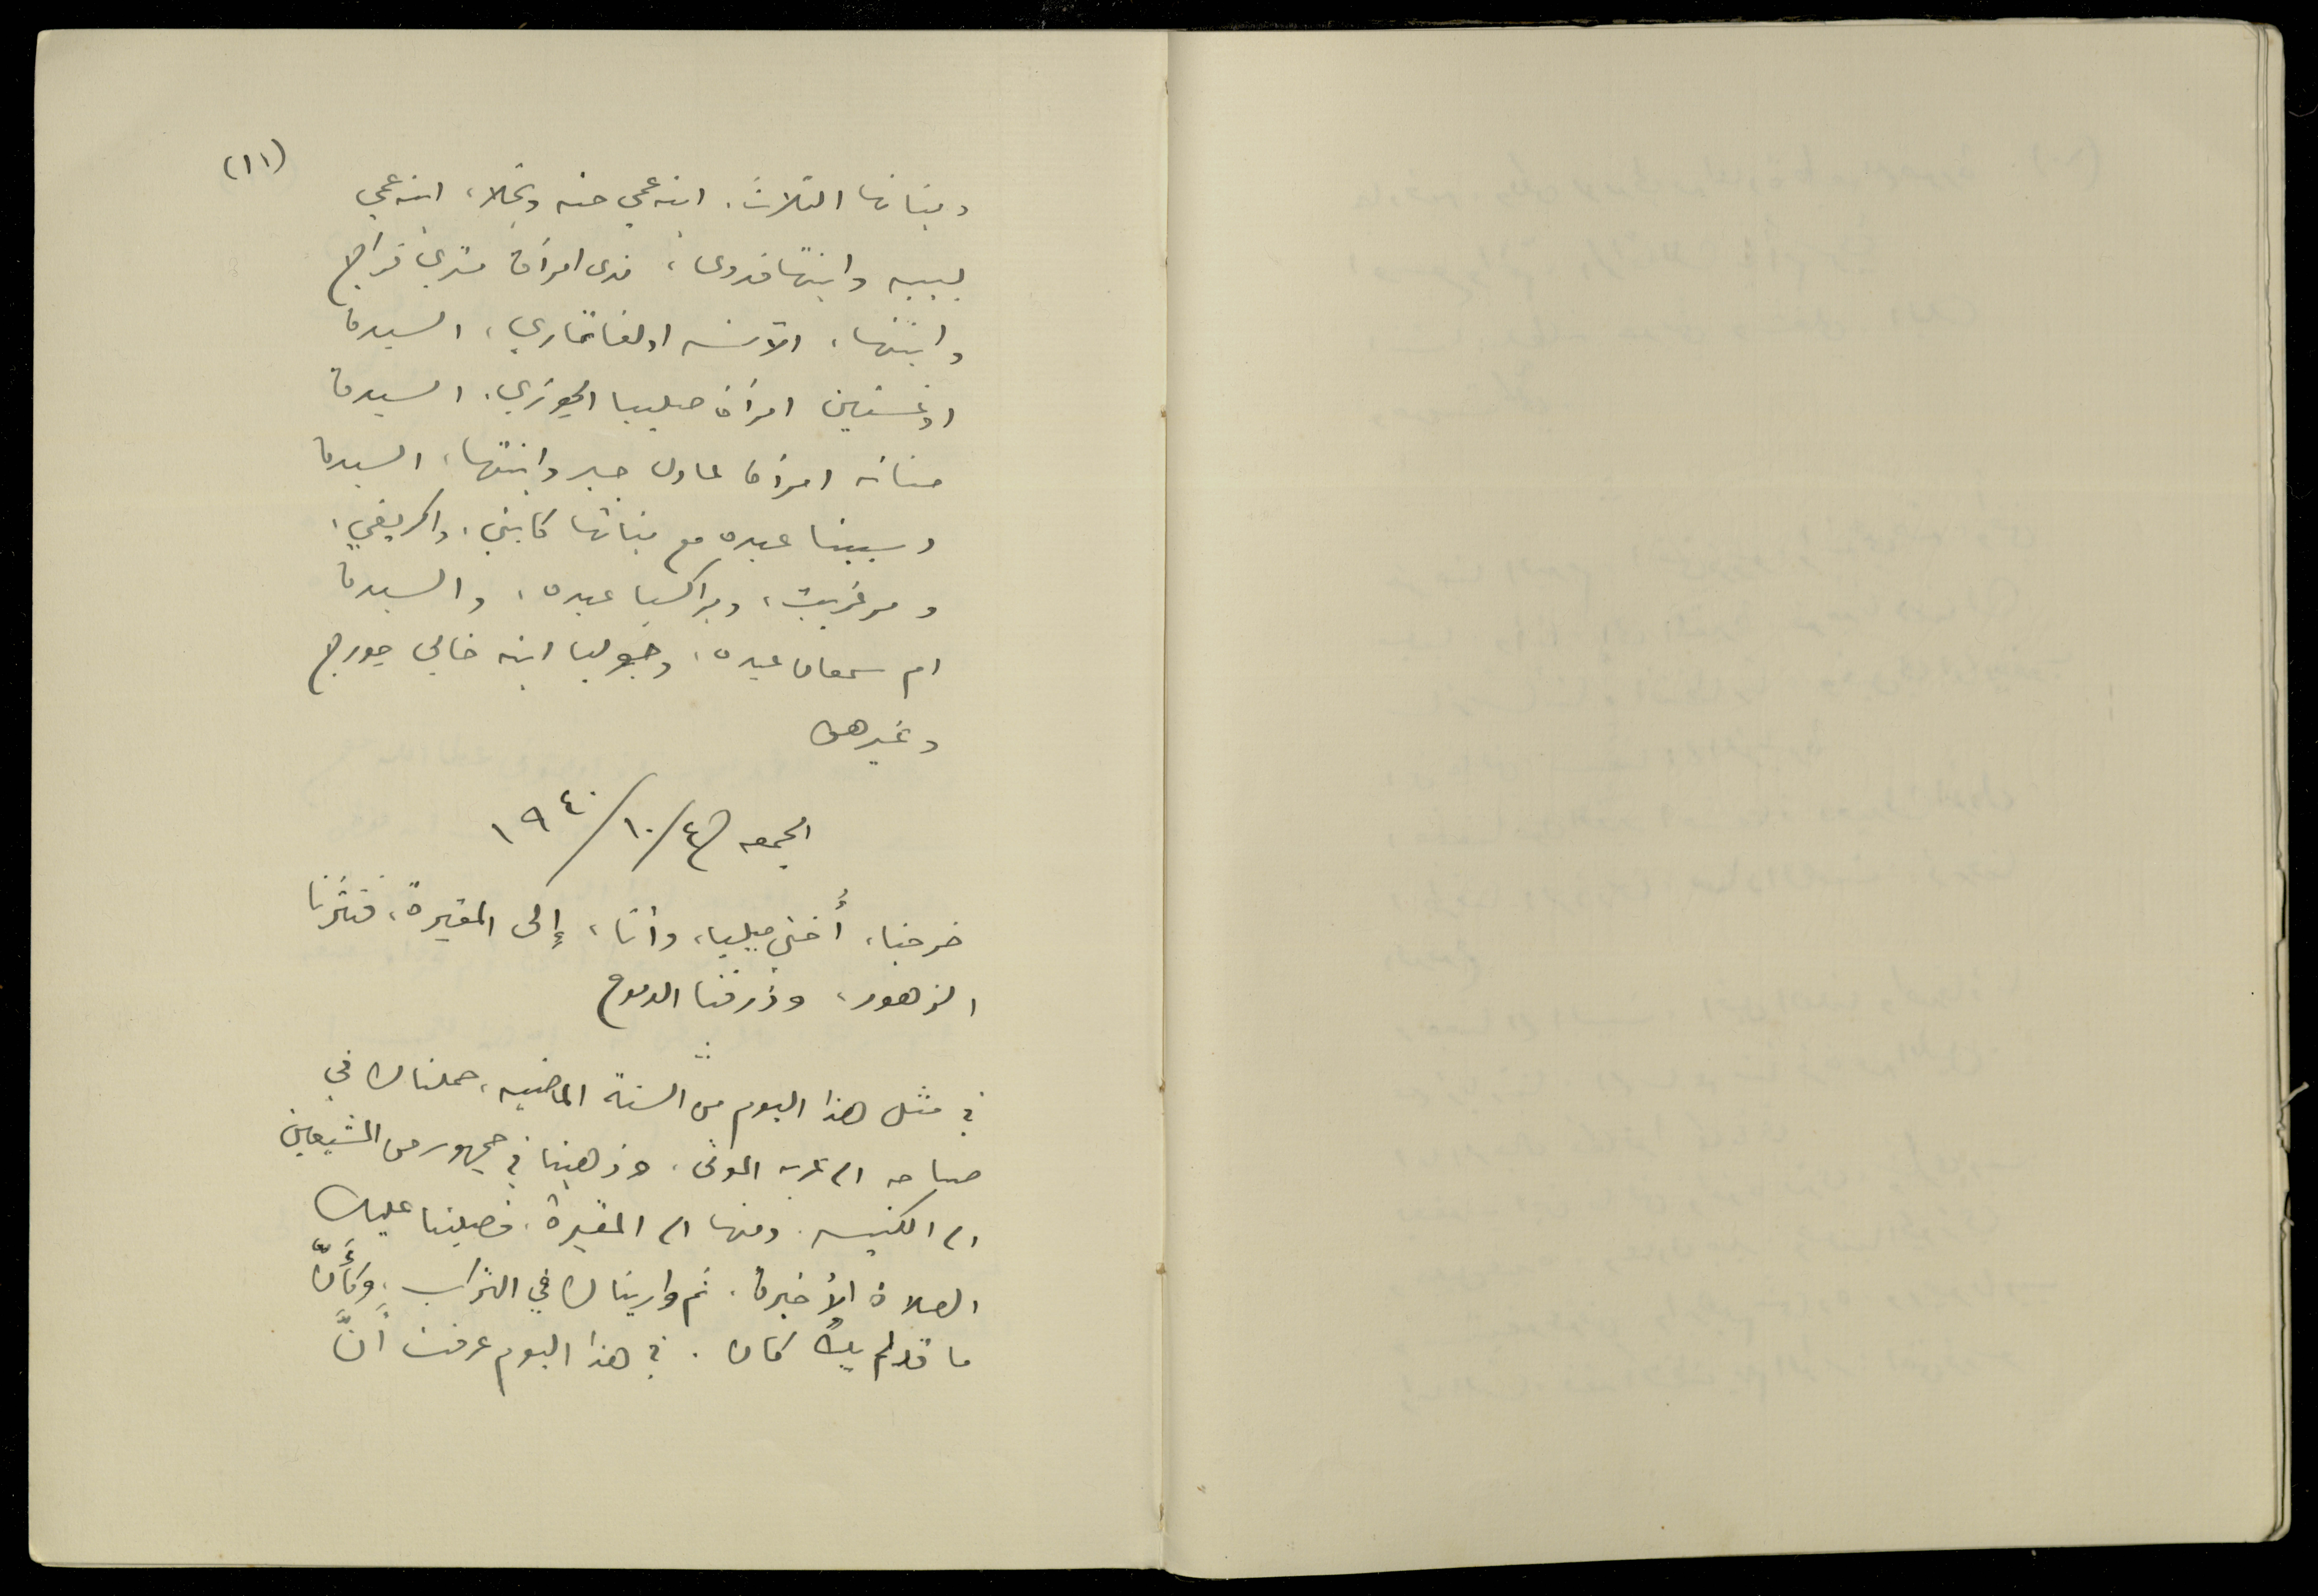 (١١)
وبناتها الثلاث. ابنه عمي حنه ونجلا، ابنه عمي
لبيبه وابنتها فدوى، ندى امرأة متري فراج
وابنتها، الآنسه اولغا تماري، السيدة
اوغستين امرأة صليبا الجوزي. السيدة
حنانه امرأة عادل جبر وابنتها، السيدة
وسبينا عبده مع بناتها كابتي. واكريفي.
ومرغريت، وبراكسيا عبده، والسيدة
ام سمعان عبده، وجوليا ابنه خالي جورج
وغيرهن
الجمعه ٤/١٠/١٩٤٠
خرجنا، أختي ميليا، وأنا، إلى المقبرة، فنثرنا
الزهور، وذرفنا الدموع
في مثل هذا اليوم من السنة الماضيه، حملناك في
صباحه الى عربه الموتى، وذهبنا في جمهور من المشيعين
الى الكنيسه. ومنها الى المقبرة. فصلينا عليك
الصلاة الأخيرة. ثم واريناك في التراب. وكأنّ
ما قد لم يكُ كان. في هذا اليوم عرفت أنَّ